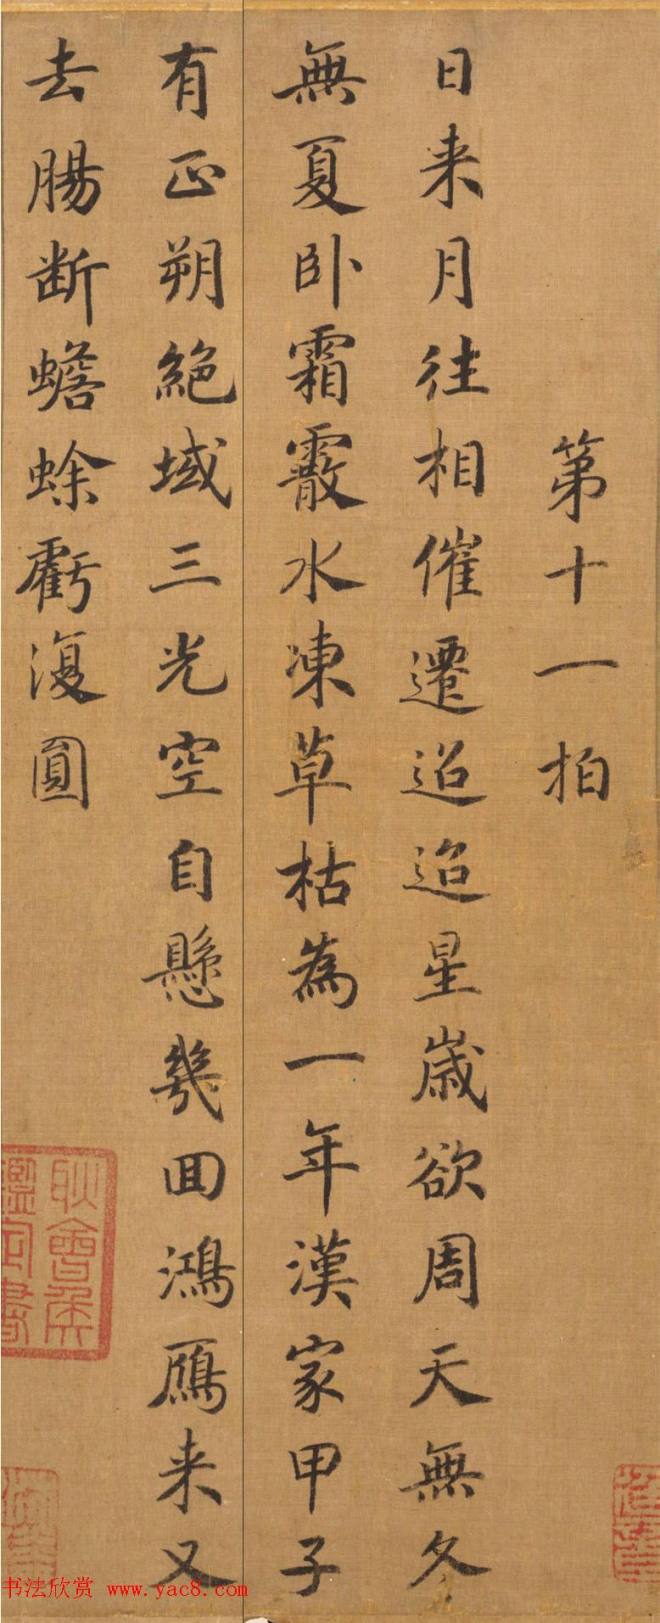 第十一拍
日来月往相催遷迢迢星歲欲周天無冬
無夏卧霜霰水凍草枯為一年漢家甲子
有正朔絕域三光空自懸幾回鴻鴈来又
去腸断蟾蜍虧復圓
耿會侯
鑑定書
书法欣赏 www.yac8.com